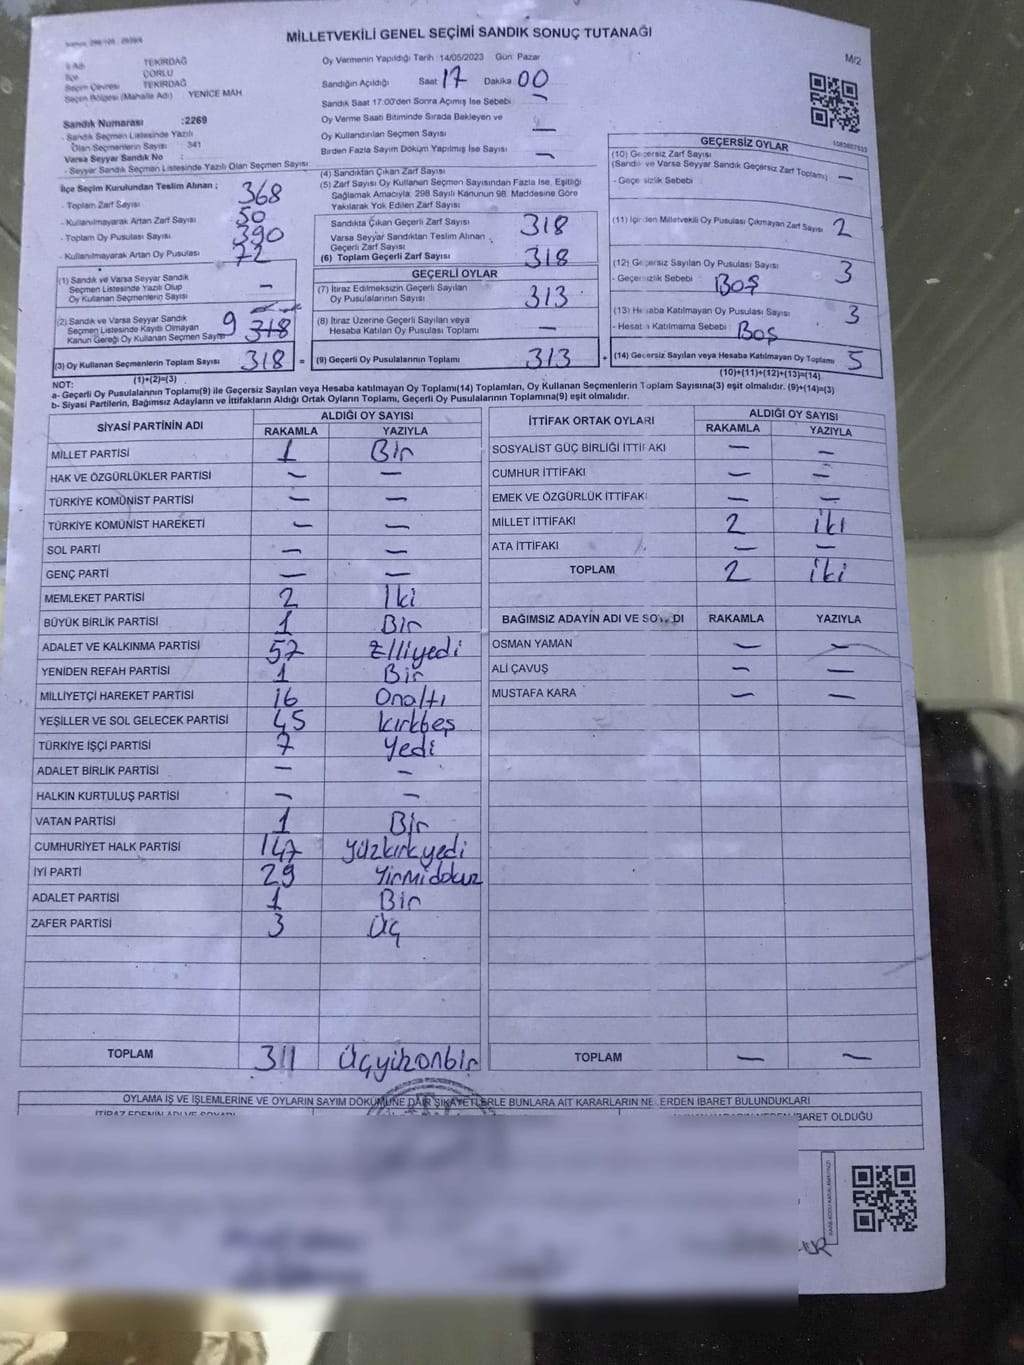 MİLLETVEKİLİ GENEL SEÇİMİ SANDIK SONUÇ TUTANAĞI
M/2
İl Adı TEKİRDAĞ
İlçe ÇORLU
Seçim Çevresi TEKİRDAĞ
Seçim Bölgesi (Mahalle Adı) YENİCE MAH
Oy Vermenin Yapıldığı Tarih :14/05/2023 Gün: Pazar
Sandığın Açıldığı Saat 17 Dakika 00
Sandık Saat 17:00'den Sonra Açmış İse Sebebi –
Oy Verme Saati Bitiminde Sırada Bekleyen ve
Oy Kullandırılan Seçmen Sayısı –
Birden Fazla Sayım Döküm Yapılmış İse Sayısı –
Sandık Numarası :2269
- Sandık Seçmen Listesinde Yazılı
Olan Seçmenlerin Sayısı 341
Varsa Seyyar Sandık No :
- Seyyar Sandık Seçmen Listesinde Yazılı Olan Seçmen Sayısı
İlçe Seçim Kurulundan Teslim Alınan ;
- Toplam Zarf Sayısı 368
- Kullanılmayarak Artan Zarf Sayısı 50
- Toplam Oy Pusulası Sayısı 390
- Kullanılmayarak Artan Oy Pusulası 72
(1) Sandık ve Varsa Seyyar Sandık
Seçmen Listesinde Yazılı Olup
Oy Kullanan Seçmenlerin Sayısı –
(2) Sandık ve Varsa Seyyar Sandık
Seçmen Listesinde Kayıtlı Olmayan
Kanun Gereği Oy Kullanan Seçmen Sayısı 9 318
(3) Oy Kullanan Seçmenlerin Toplam Sayısı 318 =
(1)+(2)=(3)
(4) Sandıktan Çıkan Zarf Sayısı
(5) Zarf Sayısı Oy Kullanan Seçmen Sayısından Fazla İse, Eşitliği
Sağlamak Amacıyla, 298 Sayılı Kanunun 98. Maddesine Göre
Yakılarak Yok Edilen Zarf Sayısı
Sandıkta Çıkan Geçerli Zarf Sayısı 318
Varsa Seyyar Sandıktan Teslim Alınan
Geçerli Zarf Sayısı
(6) Toplam Geçerli Zarf Sayısı 318
GEÇERLİ OYLAR
(7) İtiraz Edilmeksizin Geçerli Sayılan
Oy Pusulalarının Sayısı 313
(8) İtiraz Üzerine Geçerli Sayılan veya
Hesaba Katılan Oy Pusulası Toplamı –
(9) Geçerli Oy Pusulalarının Toplamı 313 +
GEÇERSİZ OYLAR
(10) Geçersiz Zarf Sayısı
(Sandık ve Varsa Seyyar Sandık Geçersiz Zarf Toplamı) –
- Geçersizlik Sebebi
(11) İçinden Milletvekili Oy Pusulası Çıkmayan Zarf Sayısı 2
(12) Geçersiz Sayılan Oy Pusulası Sayısı 3
- Geçersizlik Sebebi Boş
(13) Hesaba Katılmayan Oy Pusulası Sayısı 3
- Hesaba Katılmama Sebebi Boş
(14) Gecersiz Sayılan veya Hesaba Katılmayan Oy Toplamı 5
(10)+(11)+(12)+(13)=(14)
NOT:
a- Geçerli Oy Pusulalarının Toplamı(9) ile Geçersiz Sayılan veya Hesaba katılmayan Oy Toplamı(14) Toplamları, Oy Kullanan Seçmenlerin Toplam Sayısına(3) eşit olmalıdır. (9)+(14)=(3)
b- Siyasi Partilerin, Bağımsız Adayların ve İttifakların Aldığı Ortak Oyların Toplamı, Geçerli Oy Pusulalarının Toplamına(9) eşit olmalıdır.
SİYASİ PARTİNİN ADI
ALDIĞI OY SAYISI
RAKAMLA YAZIYLA
MİLLET PARTİSİ 1 Bir
HAK VE ÖZGÜRLÜKLER PARTİSİ – –
TÜRKİYE KOMÜNİST PARTİSİ – –
TÜRKİYE KOMÜNİST HAREKETİ – –
SOL PARTİ – –
GENÇ PARTİ – –
MEMLEKET PARTİSİ 2 İki
BÜYÜK BİRLİK PARTİSİ 1 Bir
ADALET VE KALKINMA PARTİSİ 57 Elliyedi
YENİDEN REFAH PARTİSİ 1 Bir
MİLLİYETÇİ HAREKET PARTİSİ 16 Onaltı
YEŞİLLER VE SOL GELECEK PARTİSİ 45 Kırkbeş
TÜRKİYE İŞÇİ PARTİSİ 7 Yedi
ADALET BİRLİK PARTİSİ – –
HALKIN KURTULUŞ PARTİSİ – –
VATAN PARTİSİ 1 Bir
CUMHURİYET HALK PARTİSİ 147 Yüzkırkyedi
İYİ PARTİ 29 Yirmidokuz
ADALET PARTİSİ 1 Bir
ZAFER PARTİSİ 3 Üç
TOPLAM 311 Üçyüzonbir
İTTİFAK ORTAK OYLARI
ALDIĞI OY SAYISI
RAKAMLA YAZIYLA
SOSYALİST GÜÇ BİRLİĞİ İTTİFAKI – –
CUMHUR İTTİFAKI – –
EMEK VE ÖZGÜRLÜK İTTİFAKI – –
MİLLET İTTİFAKI 2 iki
ATA İTTİFAKI – –
TOPLAM 2 iki
BAĞIMSIZ ADAYIN ADI VE SOYADI RAKAMLA YAZIYLA
OSMAN YAMAN – –
ALİ ÇAVUŞ – –
MUSTAFA KARA – –
TOPLAM – –
OYLAMA İŞ VE İŞLEMLERİNE VE OYLARIN SAYIM DÖKÜMÜNE DAİR ŞİKAYETLERLE BUNLARA AİT KARARLARIN NELERDEN İBARET BULUNDUKLARI
İTİRAZ EDENİN ADI VE SOYADI
İBARET OLDUĞU